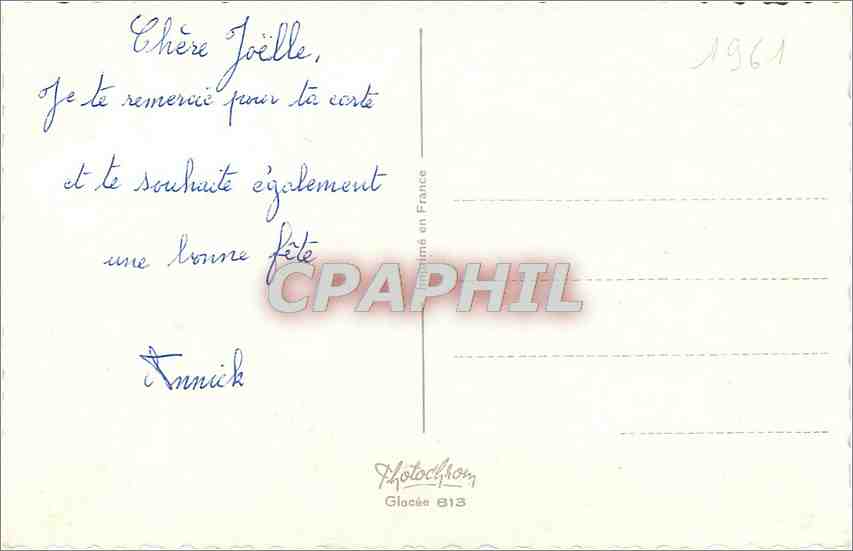 Chère Joëlle,
Je te remercie pour ta carte
et te souhaite également
une bonne fête
Annick
1961
Imprimé en France
CPAPHIL
Photochrom
Glacée 613